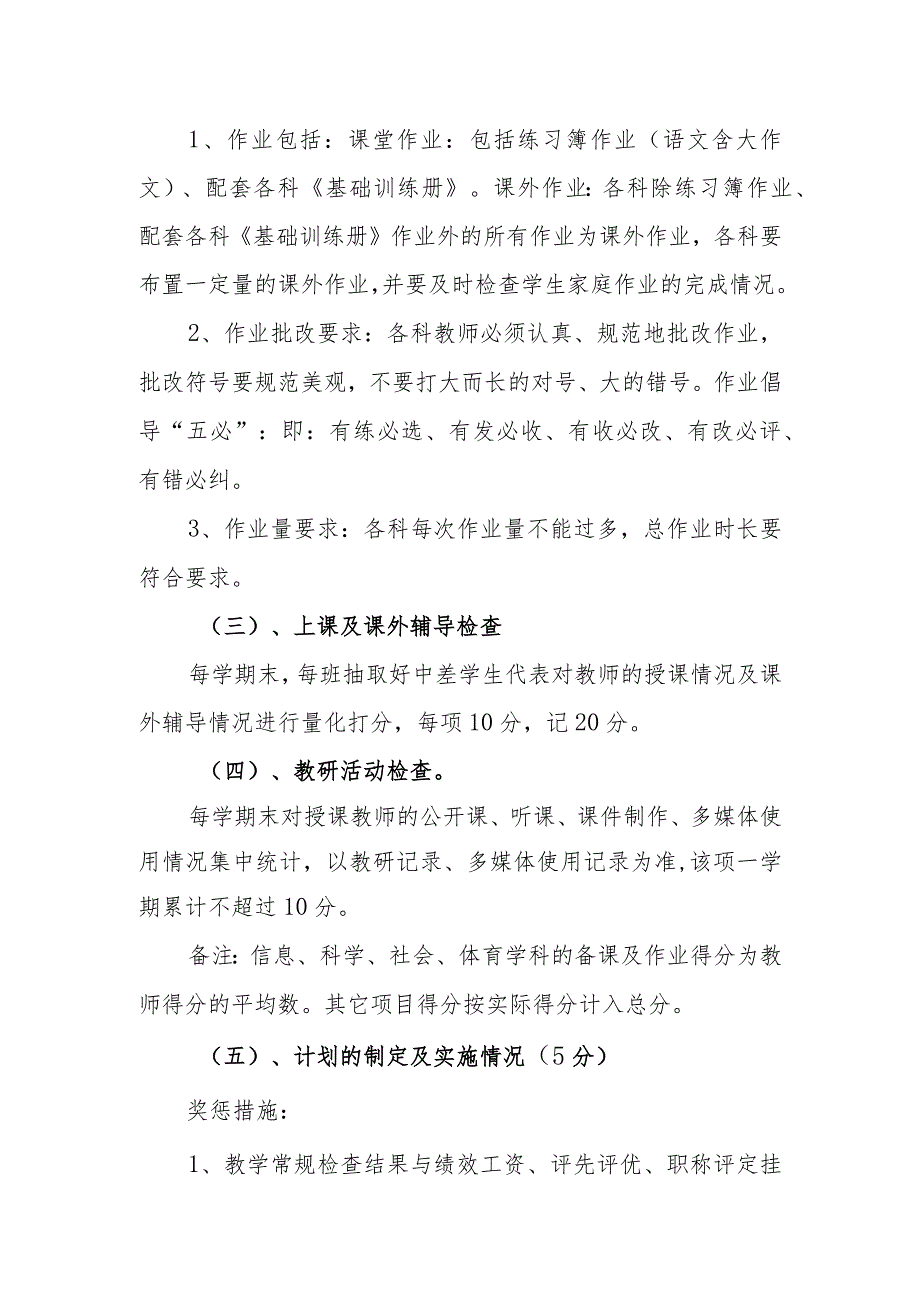 1、作业包括：课堂作业：包括练习簿作业（语文含大作
文）、配套各科《基础训练册》。课外作业：各科除练习簿作业、
配套各科《基础训练册》作业外的所有作业为课外作业，各科要
布置一定量的课外作业，并要及时检查学生家庭作业的完成情况。
2、作业批改要求：各科教师必须认真、规范地批改作业，
批改符号要规范美观，不要打大而长的对号、大的错号。作业倡
导“五必”：即：有练必选、有发必收、有收必改、有改必评、
有错必纠。
3、作业量要求：各科每次作业量不能过多，总作业时长要
符合要求。
（三）、上课及课外辅导检查
每学期末，每班抽取好中差学生代表对教师的授课情况及课
外辅导情况进行量化打分，每项10分，记20分。
（四）、教研活动检查。
每学期末对授课教师的公开课、听课、课件制作、多媒体使
用情况集中统计，以教研记录、多媒体使用记录为准,该项一学
期累计不超过10分。
备注：信息、科学、社会、体育学科的备课及作业得分为教
师得分的平均数。其它项目得分按实际得分计入总分。
（五）、计划的制定及实施情况（5分）
奖惩措施：
1、教学常规检查结果与绩效工资、评先评优、职称评定挂